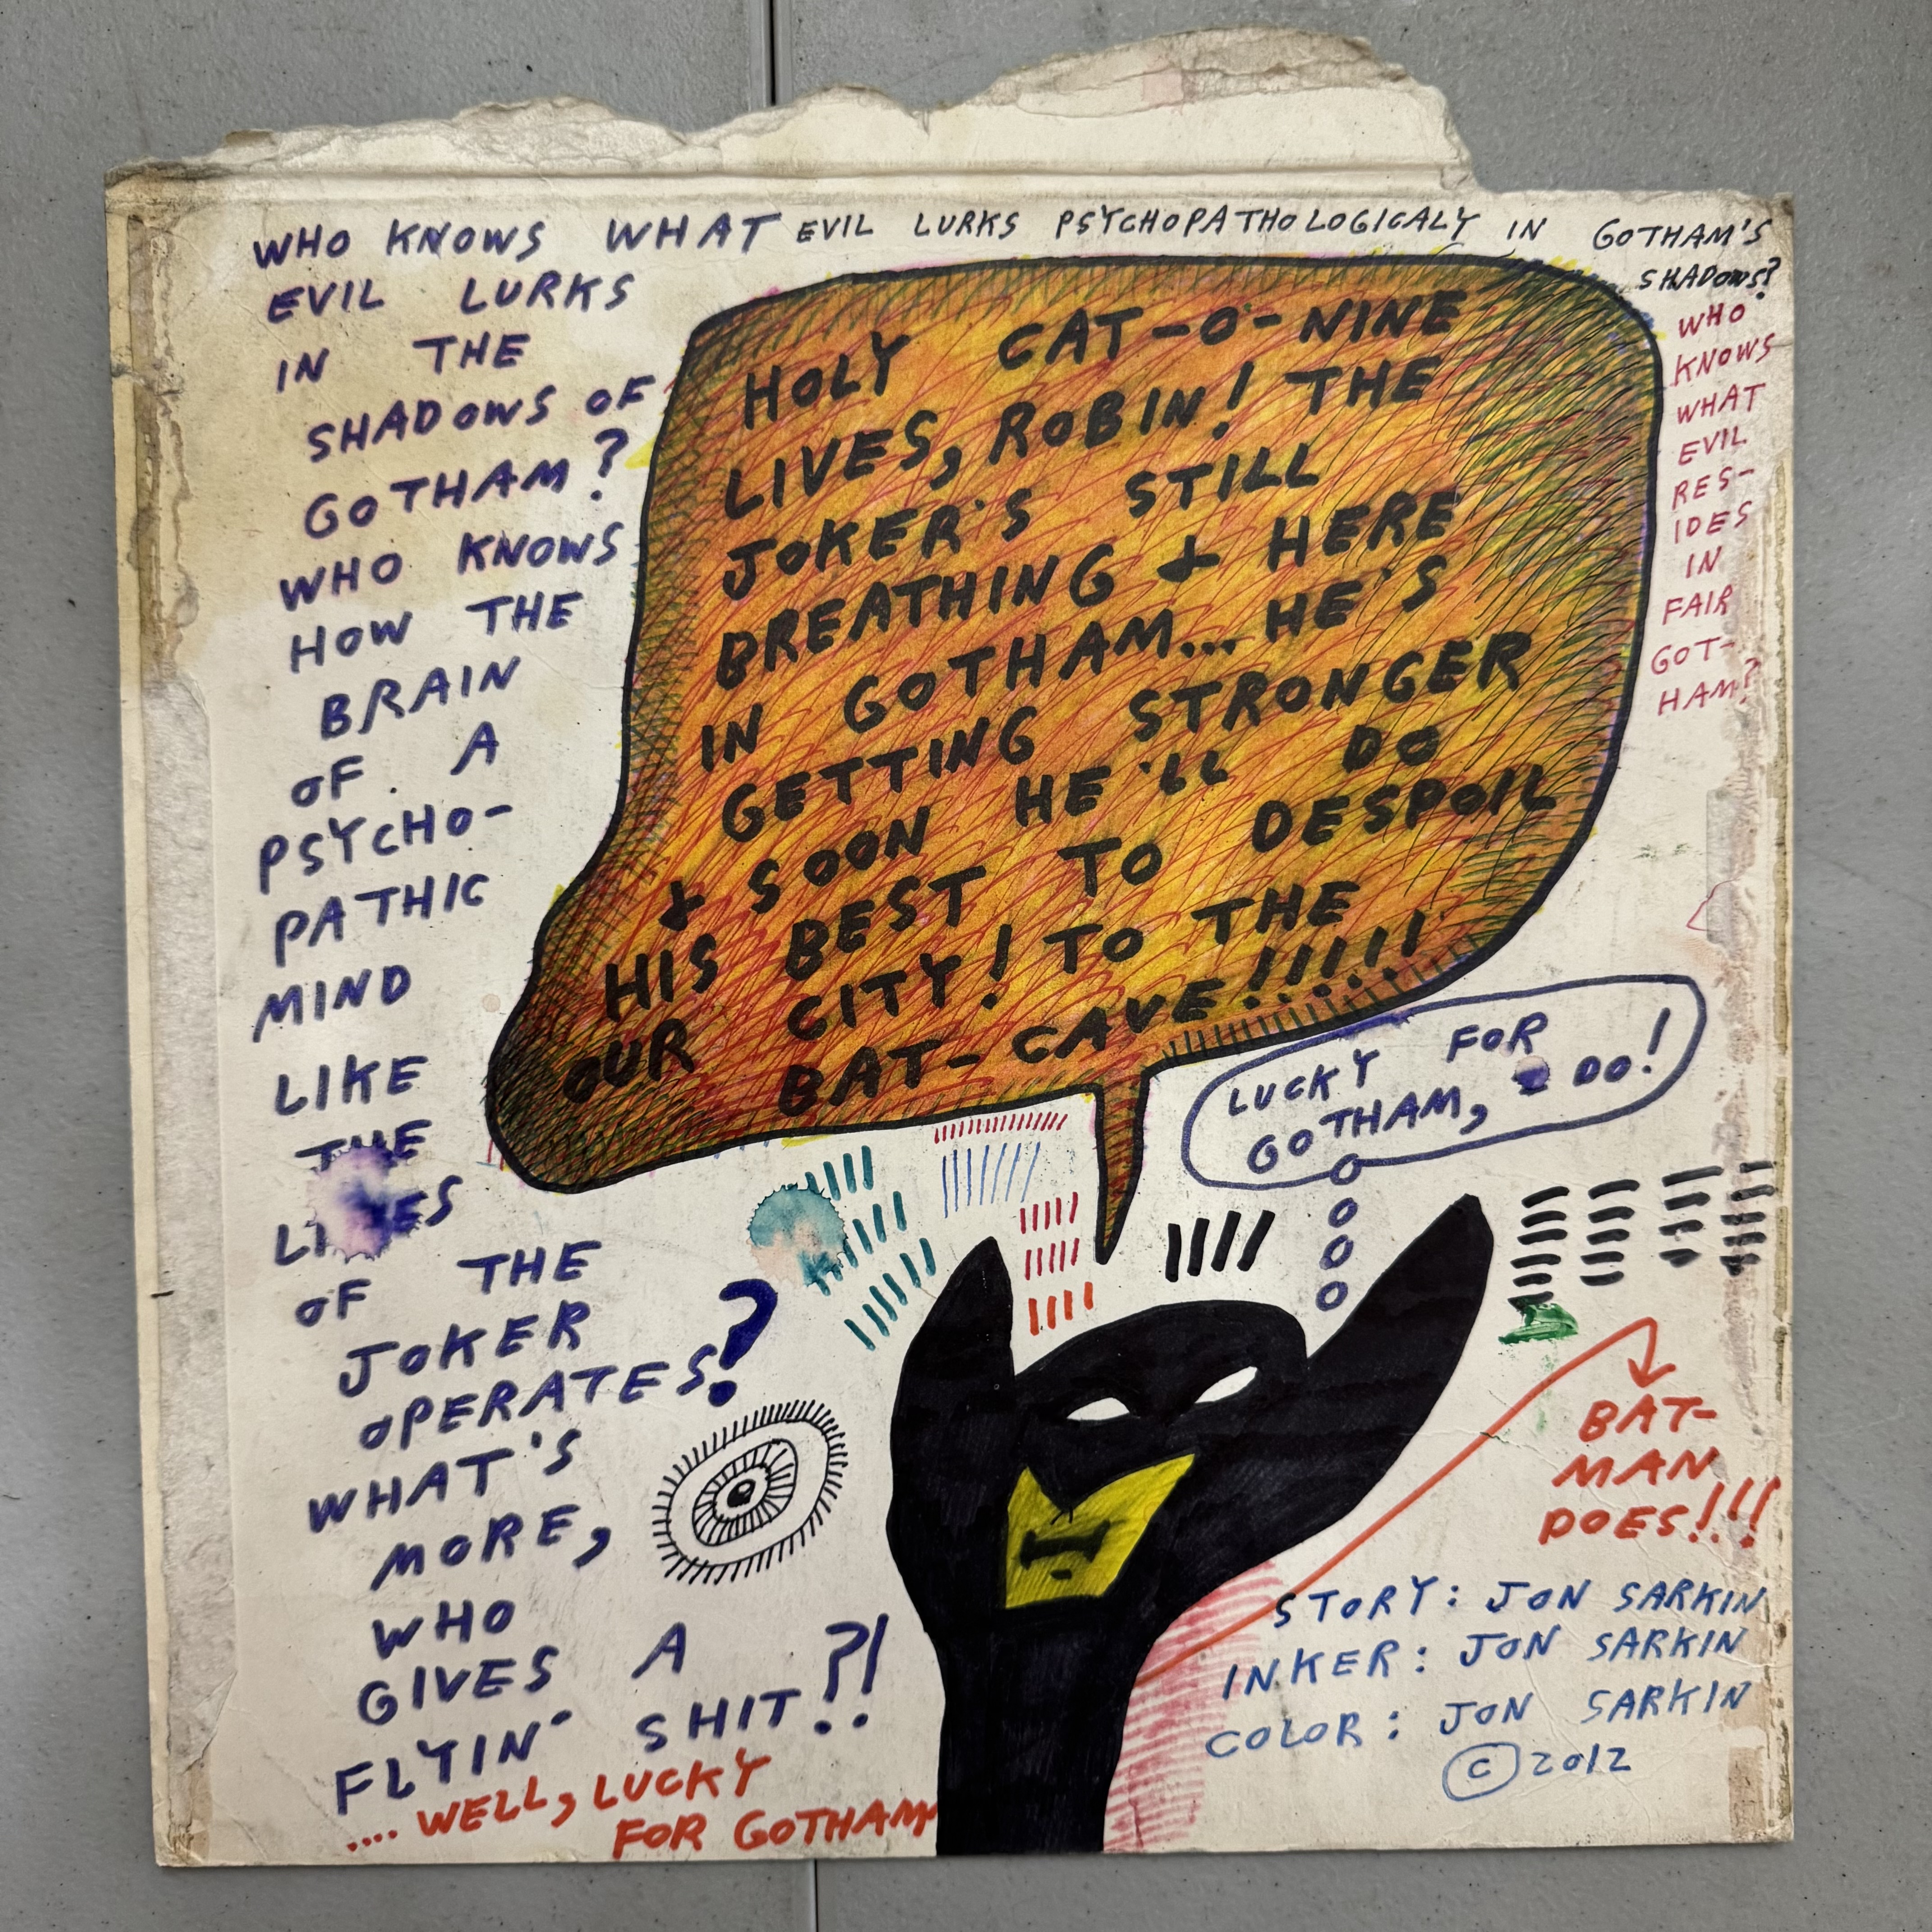 WHO KNOWS WHAT EVIL LURKS PSYCHOPATHOLOGICALY IN GOTHAM'S
SHADOWS?
EVIL LURKS
IN THE
SHADOWS OF
GOTHAM?
WHO KNOWS
HOW THE
BRAIN
OF A
PSYCHO-
PATHIC
MIND
LIKE
THE
OF THE
JOKER
OPERATES?
WHAT'S
MORE,
WHO
GIVES A
FLYIN' SHIT?!
.... WELL, LUCKY
FOR GOTHAM
HOLY CAT-O'-NINE
LIVES, ROBIN! THE
JOKER'S STILL
BREATHING & HERE
IN GOTHAM... HE'S
GETTING STRONGER
& SOON HE'LL DO
HIS BEST TO DESPOIL
OUR CITY! TO THE
BAT-CAVE!!!!!
WHO
KNOWS
WHAT
EVIL
RES-
IDES
IN
FAIR
GOT-
HAM?
LUCKY FOR
GOTHAM, I DO!
BAT-
MAN
DOES!!!
STORY: JON SARKIN
INKER: JON SARKIN
COLOR: JON SARKIN
© 2012